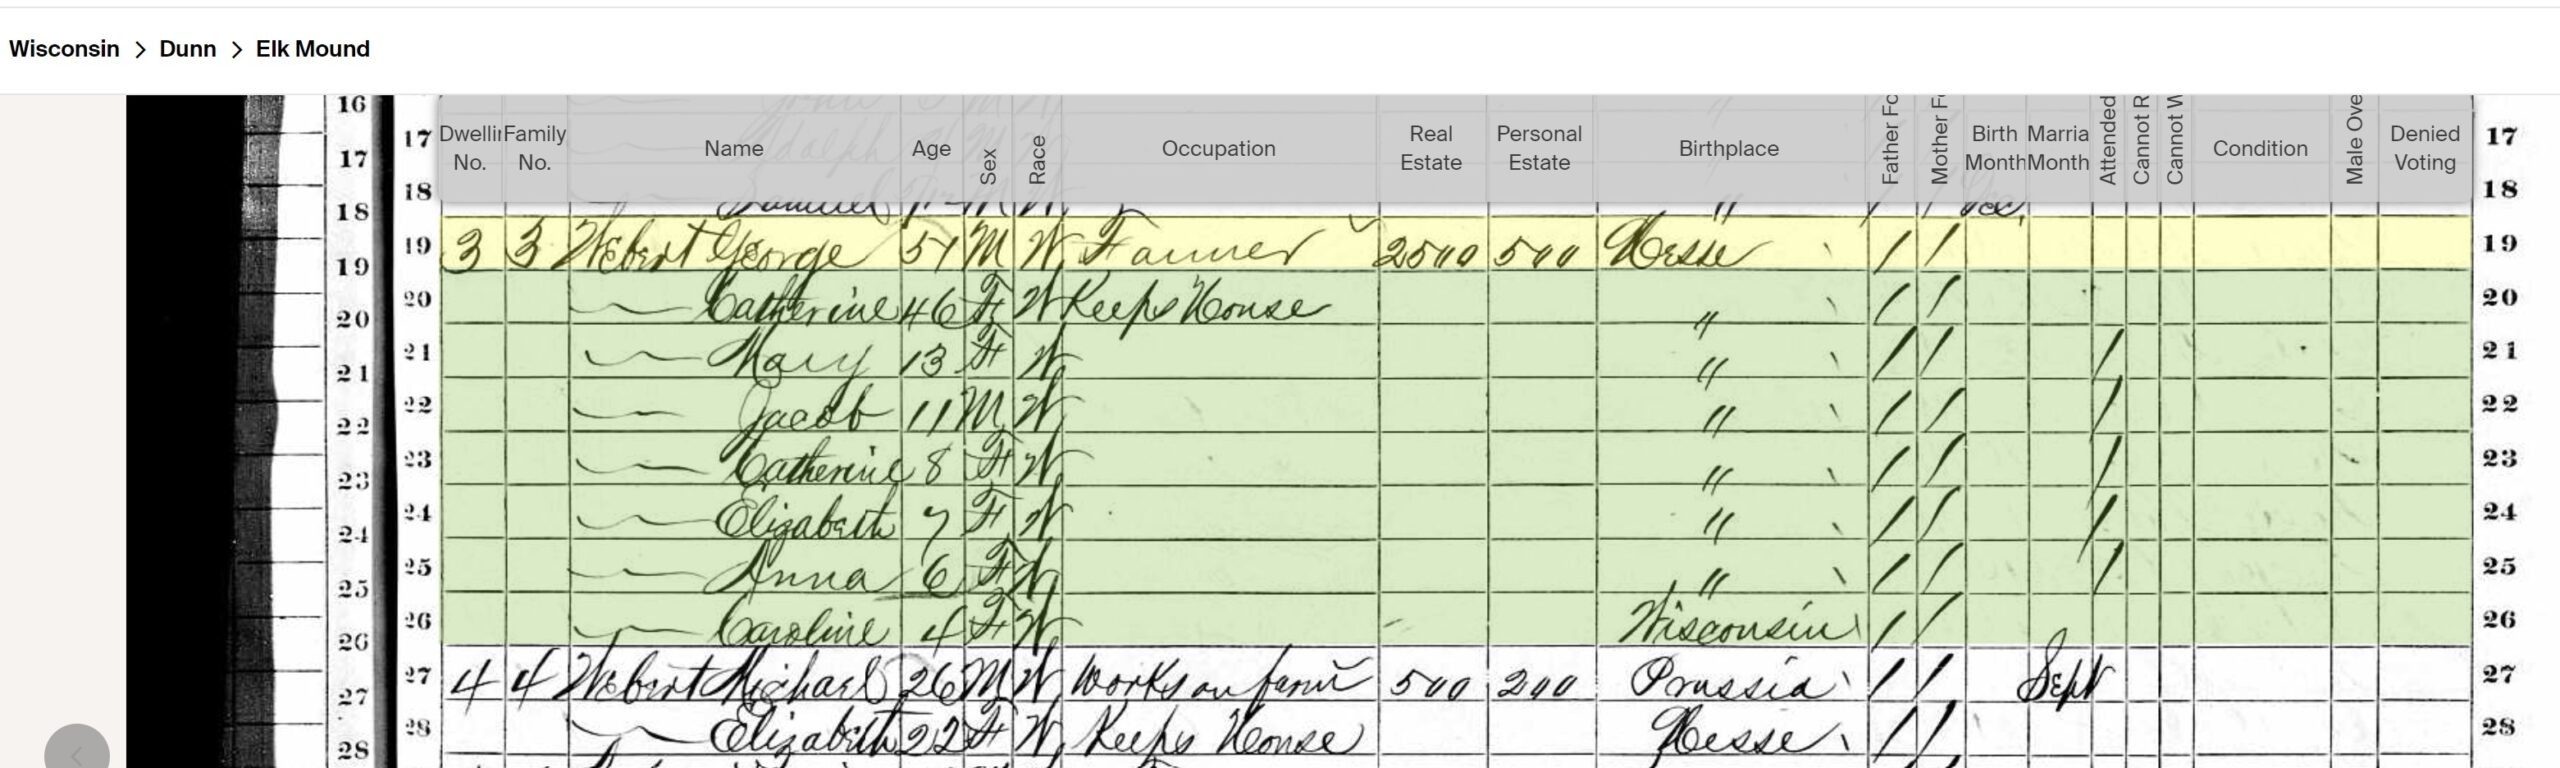 Wisconsin > Dunn > Elk Mound
Dwelli No. Family No. Name Age Sex Race Occupation Real Estate Personal Estate Birthplace Father Fo Mother Fo Birth Month Marria Month Attended Cannot R Cannot W Condition Male Ove Denied Voting
16
17 17 17
18 18 18 Samuel M W " / / Dec.
19 19 3 3 Webert George 51 M W Farmer 2500 500 Hesse / / 19
20 20 Catherine 46 F W Keeps House " / / 20
21 21 Mary 13 F W " / / / 21
22 22 Jacob 11 M W " / / / 22
23 23 Catherine 8 F W " / / / 23
24 24 Elizabeth 7 F W " / / / 24
25 25 Anna 6 F W " / / / 25
26 26 Caroline 4 F W Wisconsin / / 26
27 27 4 4 Webert Michael 26 M W Works on farm 500 200 Prussia / / Sept 27
28 28 Elizabeth 22 F W Keeps House Hesse / / 28